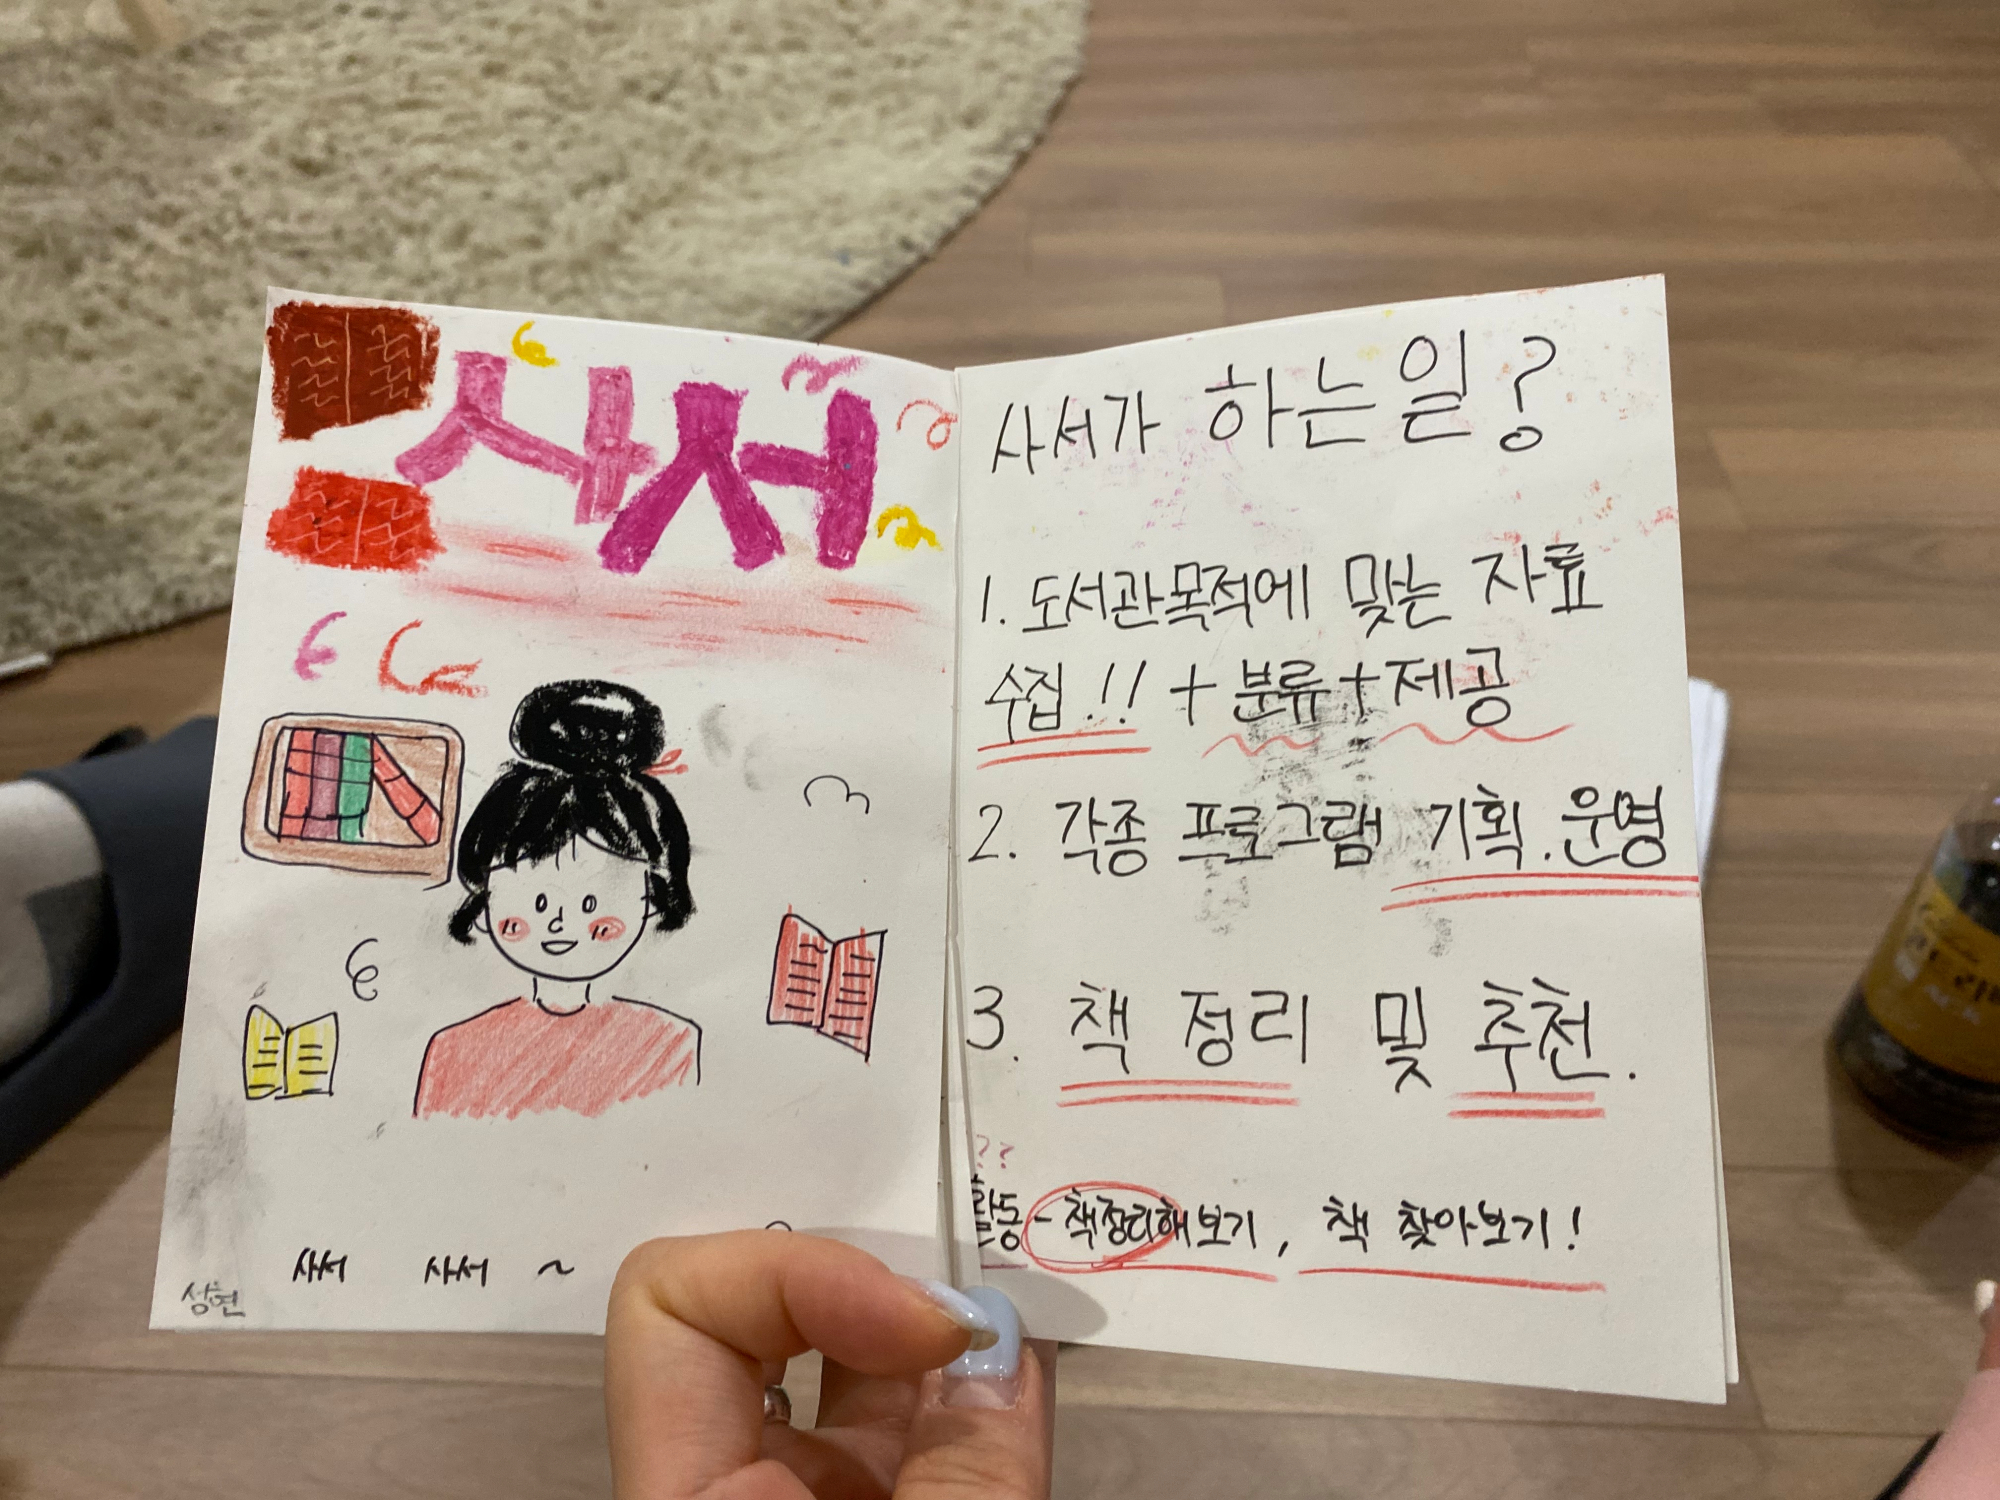 사서
사서 사서 ~
상현
사서가 하는 일?
1. 도서관목적에 맞는 자료
수집!! + 분류 + 제공
2. 각종 프로그램 기획.운영
3. 책 정리 및 추천.
??
활동 - 책정리해보기, 책 찾아보기!